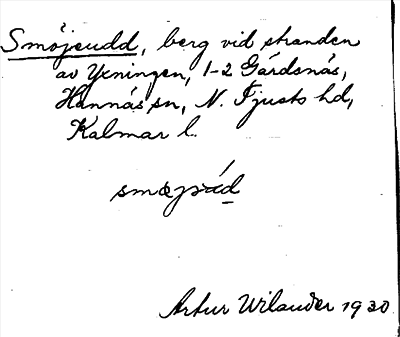 Smöjeudd, berg vid stranden
av Yxningen, 1-2 Gårdsnäs,
Hannäs sn, N. Tjusts hd,
Kalmar l.
Artur Wilander 1930